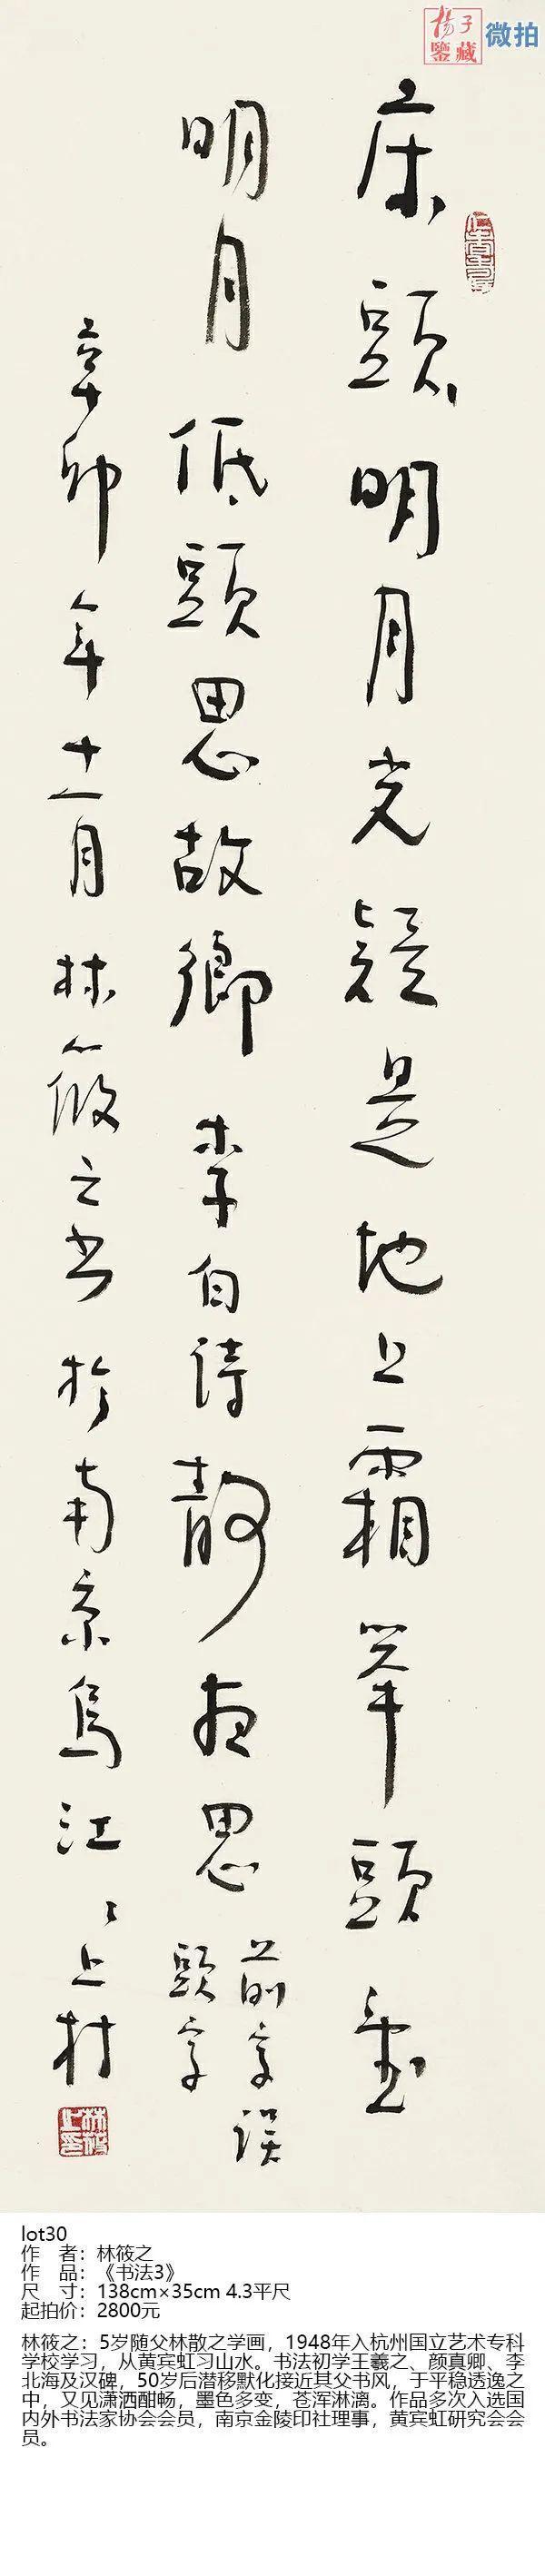 揚子
鑒藏
微拍
床頭明月光疑是地上霜舉頭望
明月低頭思故鄉 李白詩静夜思
前字誤
頭字
辛卯年十一月林筱之书於南京烏江〻上村
林筱之印
lot30
作 者：林筱之
作 品：《书法3》
尺 寸：138cm×35cm 4.3平尺
起拍价：2800元
林筱之：5岁随父林散之学画，1948年入杭州国立艺术专科
学校学习，从黄宾虹习山水。书法初学王羲之、颜真卿、李
北海及汉碑，50岁后潜移默化接近其父书风，于平稳透逸之
中，又见潇洒酣畅，墨色多变，苍浑淋漓。作品多次入选国
内外书法家协会会员，南京金陵印社理事，黄宾虹研究会会
员。